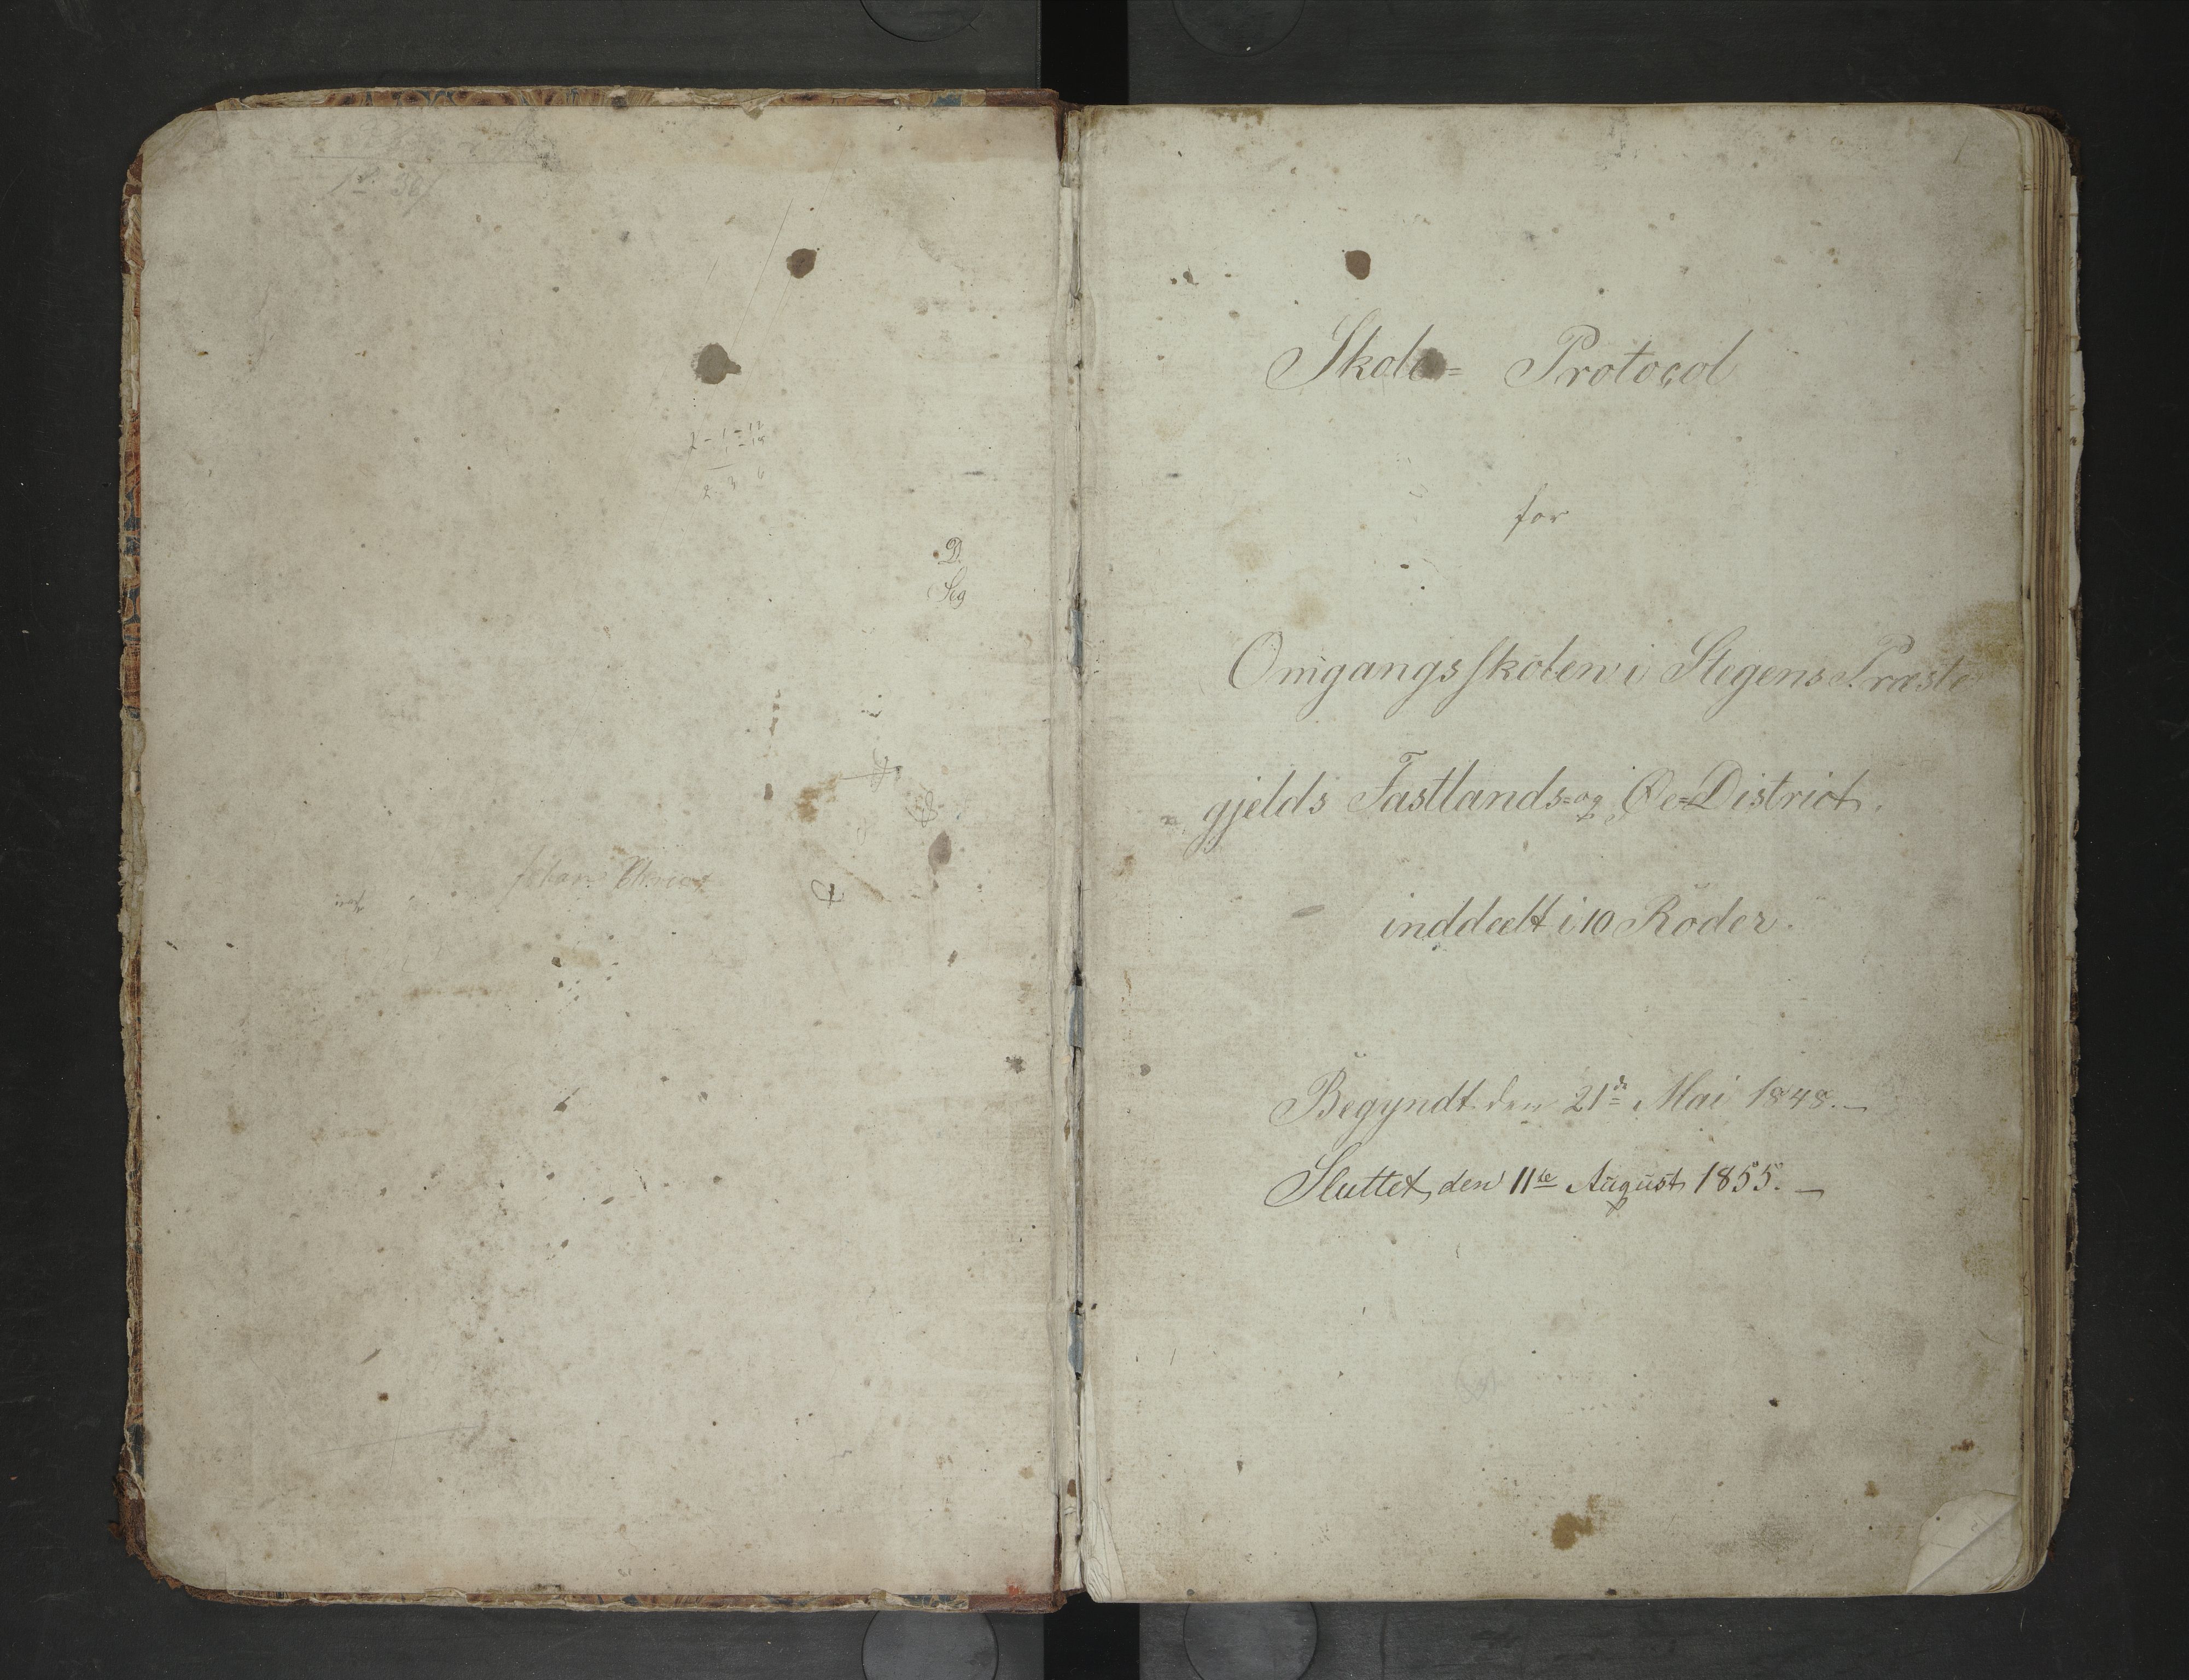 2 - 1 - 11
2 3 6
D.
Seg
Skole= Protocol
for
Omgangsskolen i Stegens Præste
gjelds Fastlands=og Øe=District.
inddeelt i 10 Röder.
Begyndt den 21de Mai 1848.—
Sluttet den 11te August 1855.—